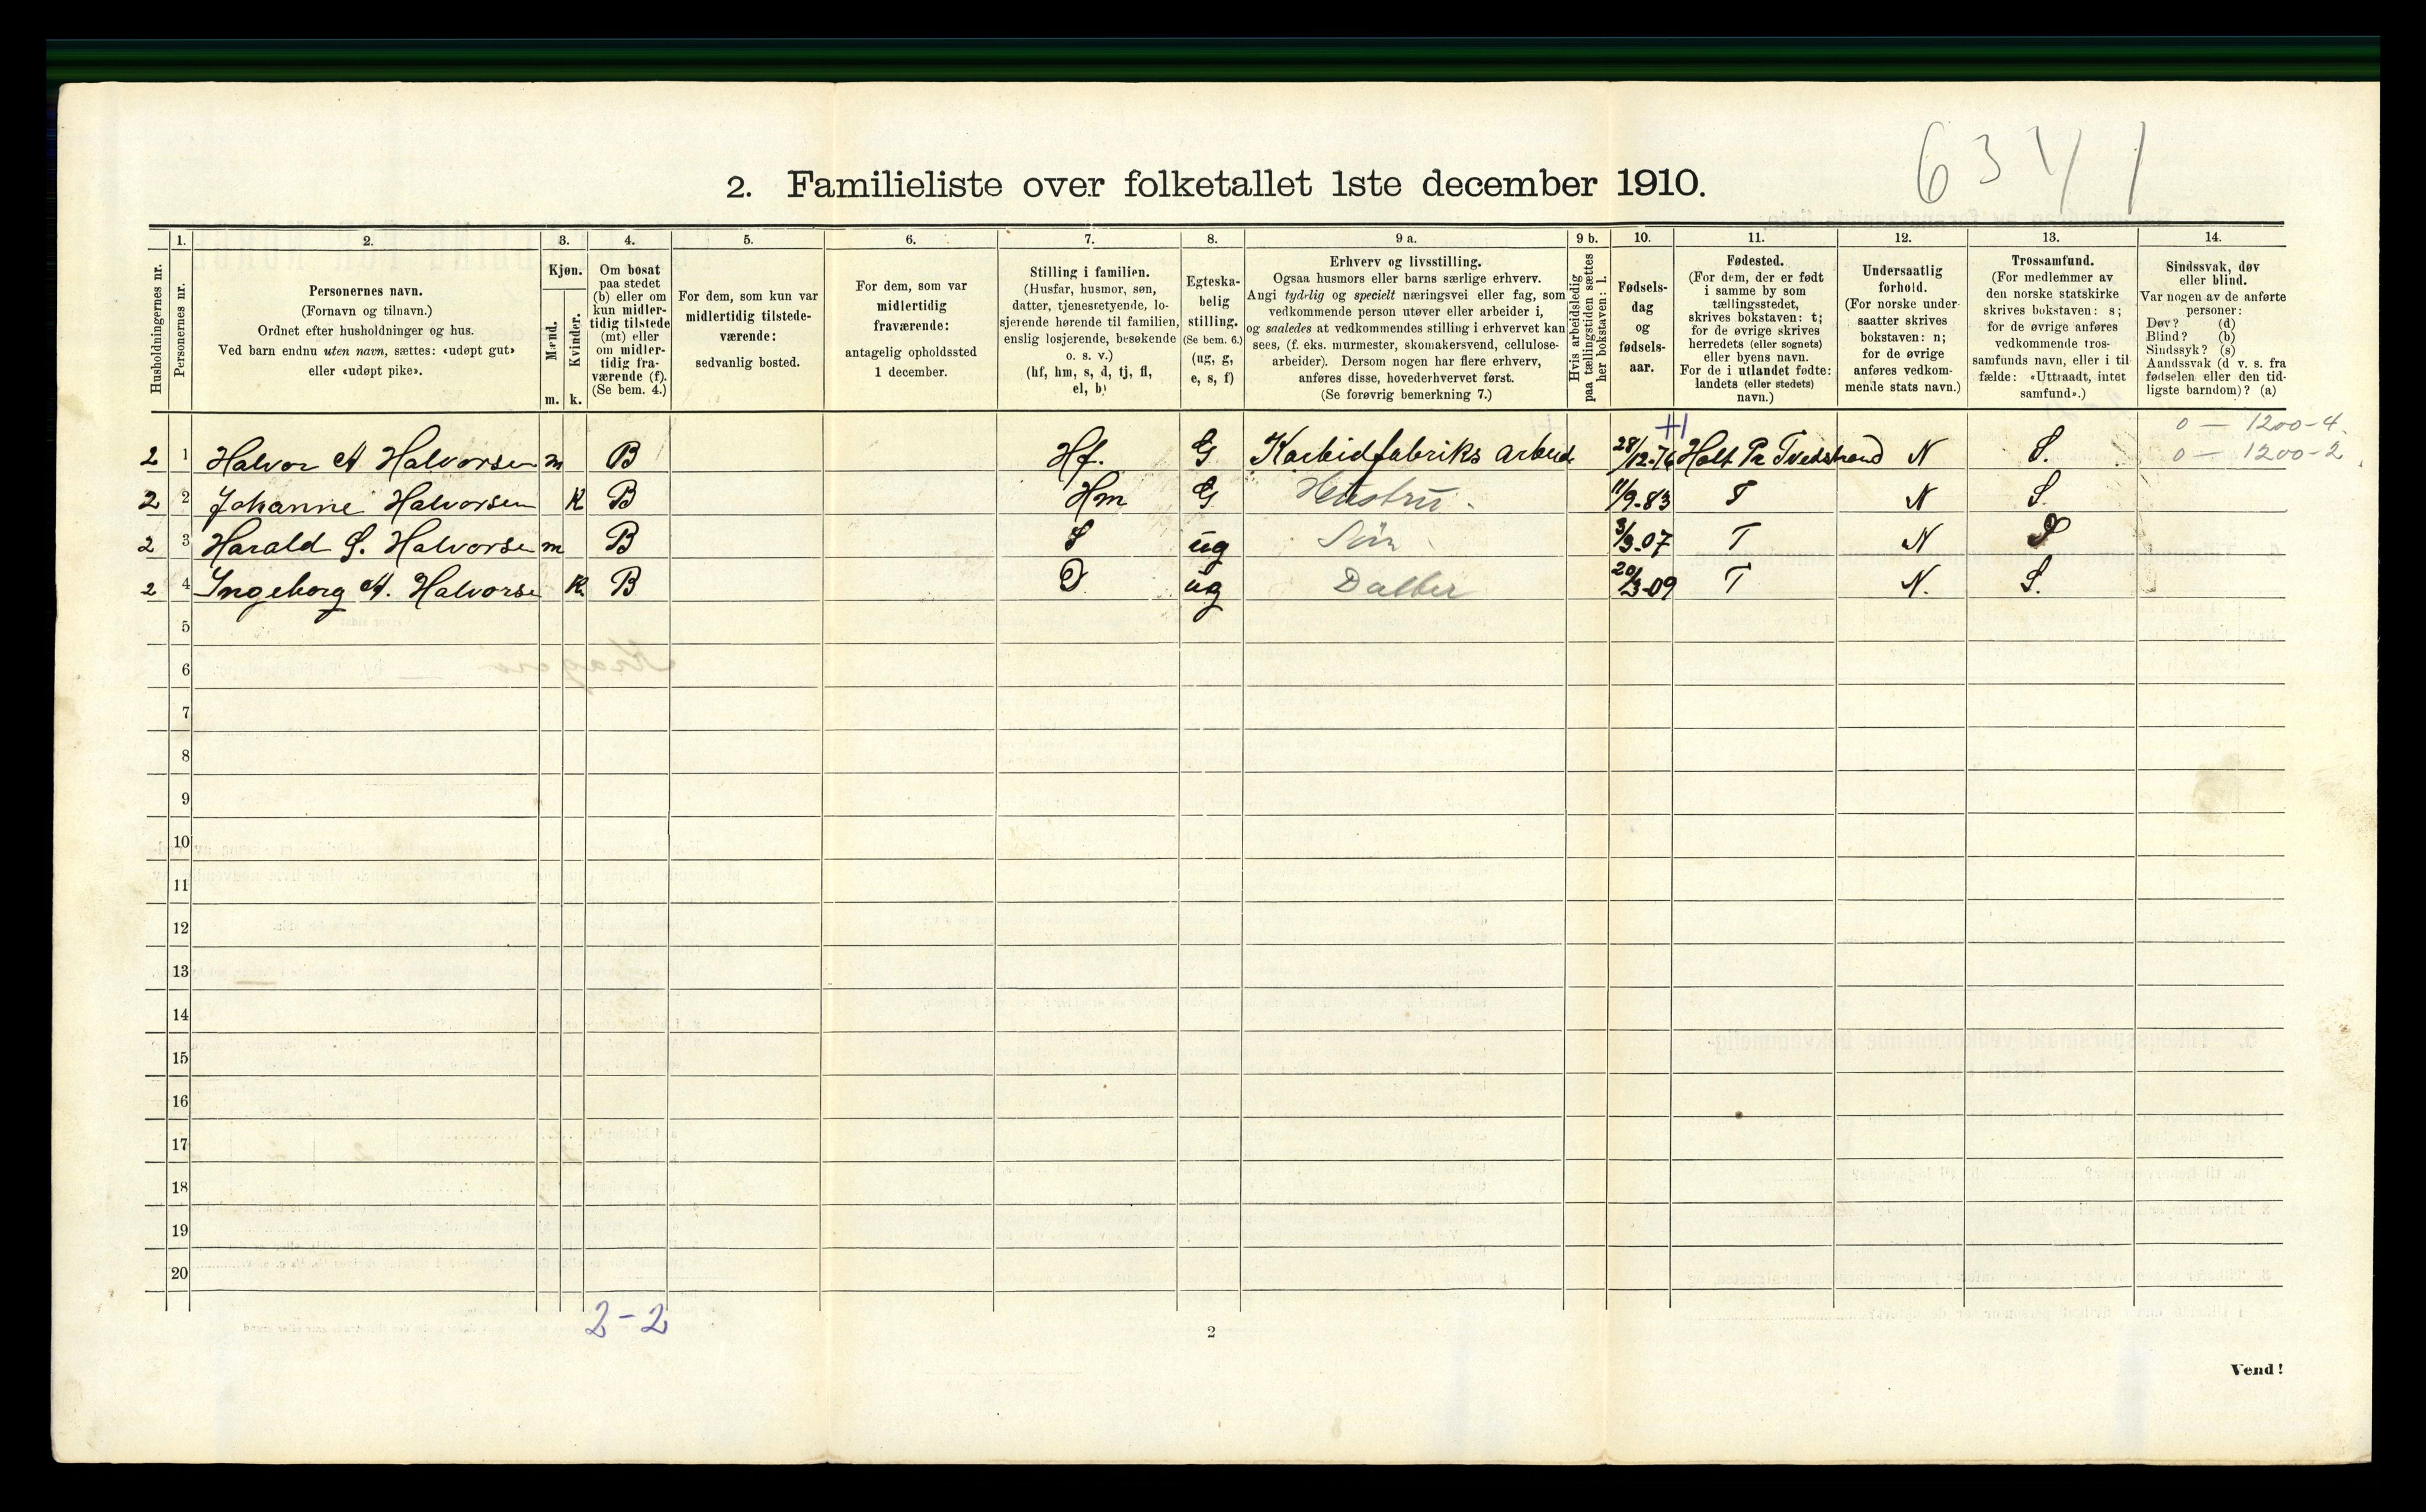 6341
2. Familieliste over folketallet 1ste december 1910.
1. 2. 3. 4. 5. 6. 7. 8. 9 a. 9 b. 10. 11. 12. 13. 14.
Husholdningernes nr.
Personernes nr.
Personernes navn.
(Fornavn og tilnavn.)
Ordnet efter husholdninger og hus.
Ved barn endnu uten navn, sættes: «udøpt gut»
eller «udøpt pike».
Kjøn.
Mænd.
Kvinder.
m. k.
Om bosat
paa stedet
(b) eller om
kun midler-
tidig tilstede
(mt) eller
om midler-
tidig fra-
værende (f).
(Se bem. 4.)
For dem, som kun var
midlertidig tilstede-
værende:
sedvanlig bosted.
For dem, som var
midlertidig
fraværende:
antagelig opholdssted
1 december.
Stilling i familien.
(Husfar, husmor, søn,
datter, tjenestetyende, lo-
sjerende hørende til familien,
enslig losjerende, besøkende
o. s. v.)
(hf, hm, s, d, tj, fl,
el, b)
Egteska-
belig
stilling.
(Se bem. 6.)
(ug, g,
e, s, f)
Erhverv og livsstilling.
Ogsaa husmors eller barns særlige erhverv.
Angi tydelig og specielt næringsvei eller fag, som
vedkommende person utøver eller arbeider i,
og saaledes at vedkommendes stilling i erhvervet kan
sees, (f. eks. murmester, skomakersvend, cellulose-
arbeider). Dersom nogen har flere erhverv,
anføres disse, hovederhvervet først.
(Se forøvrig bemerkning 7.)
Hvis arbeidsledig
paa tællingstiden sættes
her bokstaven: l.
Fødsels-
dag
og
fødsels-
aar.
Fødested.
(For dem, der er født
i samme by som
tællingsstedet,
skrives bokstaven: t;
for de øvrige skrives
herredets (eller sognets)
eller byens navn.
For de i utlandet fødte:
landets (eller stedets)
navn.)
Undersaatlig
forhold.
(For norske under-
saatter skrives
bokstaven: n;
for de øvrige
anføres vedkom-
mende stats navn.)
Trossamfund.
(For medlemmer av
den norske statskirke
skrives bokstaven: s;
for de øvrige anføres
vedkommende tros-
samfunds navn, eller i til-
fælde: «Uttraadt, intet
samfund».)
Sindssvak, døv
eller blind.
Var nogen av de anførte
personer:
Døv? (d)
Blind? (b)
Sindssyk? (s)
Aandssvak (d v. s. fra
fødselen eller den tid-
ligste barndom)? (a)
0 — 1200-4.
0 — 1200-2
2 1 Halvor A Halvorsen m B Hf. G Karbidfabriks arbeid 28/12-76 Holt Pr Tvedstrand N S.
2 2 Johanne Halvorsen K B Hm G Hustru 11/9-83 T N S.
2 3 Harald S. Halvorse m B S ug Sön 3/3-07 T N S
2 4 Ingeborg A. Halvorse K B D ug Datter 20/3-09 T N. S.
5
6
7
8
9
10
11
12
13
14
15
16
17
18
19
20
2-2
2
Vend!